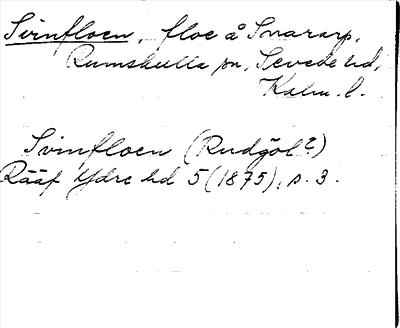 Svinfloen, floe å Snararp,
Rumskulla sn, Sevede hd,
Kalm. l.
Svinfloen (Rudgöl?)
Rääf Ydre hd 5 (1875), s. 3.